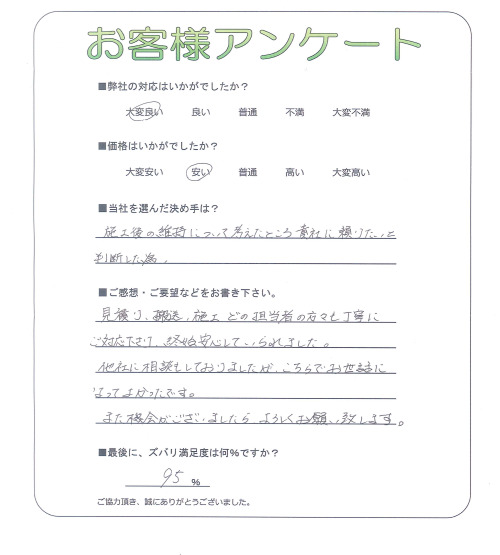 お客様アンケート
■弊社の対応はいかがでしたか？
大変良い 良い 普通 不満 大変不満
■価格はいかがでしたか？
大変安い 安い 普通 高い 大変高い
■当社を選んだ決め手は？
施工後の維持について考えたところ貴社に頼りたいと
判断した為。
■ご感想・ご要望などをお書き下さい。
見積り、搬送、施工 どの担当者の方々も丁寧に
ご対応下さり、終始安心していられました。
他社に相談もしておりましたが、こちらでお世話に
なってよかったです。
また機会がございましたら よろしくお願い致します。
■最後に、ズバリ満足度は何%ですか？
95 %
ご協力頂き、誠にありがとうございました。